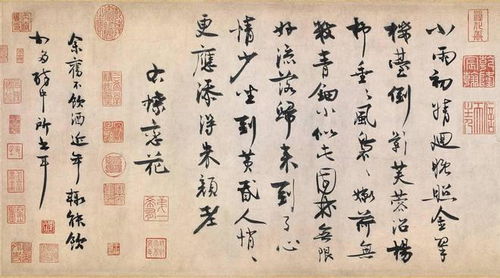 小雨初晴迴晚照金翠
樓臺倒影芙蓉沼楊
柳垂〻風裊〻嫩荷無
數青鈿小似此園林無限
好流落歸來到了心
情少坐到黃昏人悄〻
更應添得朱顏老
右蝶戀花
余舊不飲酒近年輒能飲
中所書耳